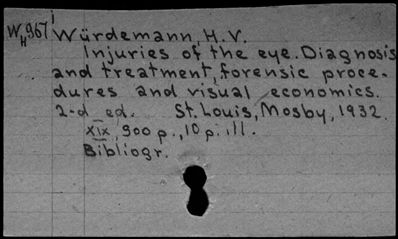 WH967 Würdemann, H.V.
Injuries of the eye. Diagnosis
and treatment, forensic proce-
dures and visual economics.
2-d ed. St. Louis, Mosby, 1932.
XIX, 900 p., 10 p. ill.
Bibliogr.